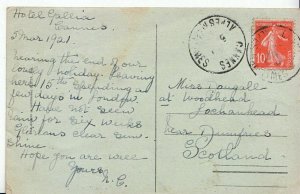 Hotel Gallia
Cannes
5 Mar 1921.
Nearing the end of our
lovely holiday. Leaving
here 15th. Spending a
few days in London
Have not seen
rain for six weeks
Glorious clear sun-
shine.
Hope you are well
Yours
N.C.
CANNES
10
Miss Dougall
at Woodhead
Lochanhead
near Dumfries
Scotland